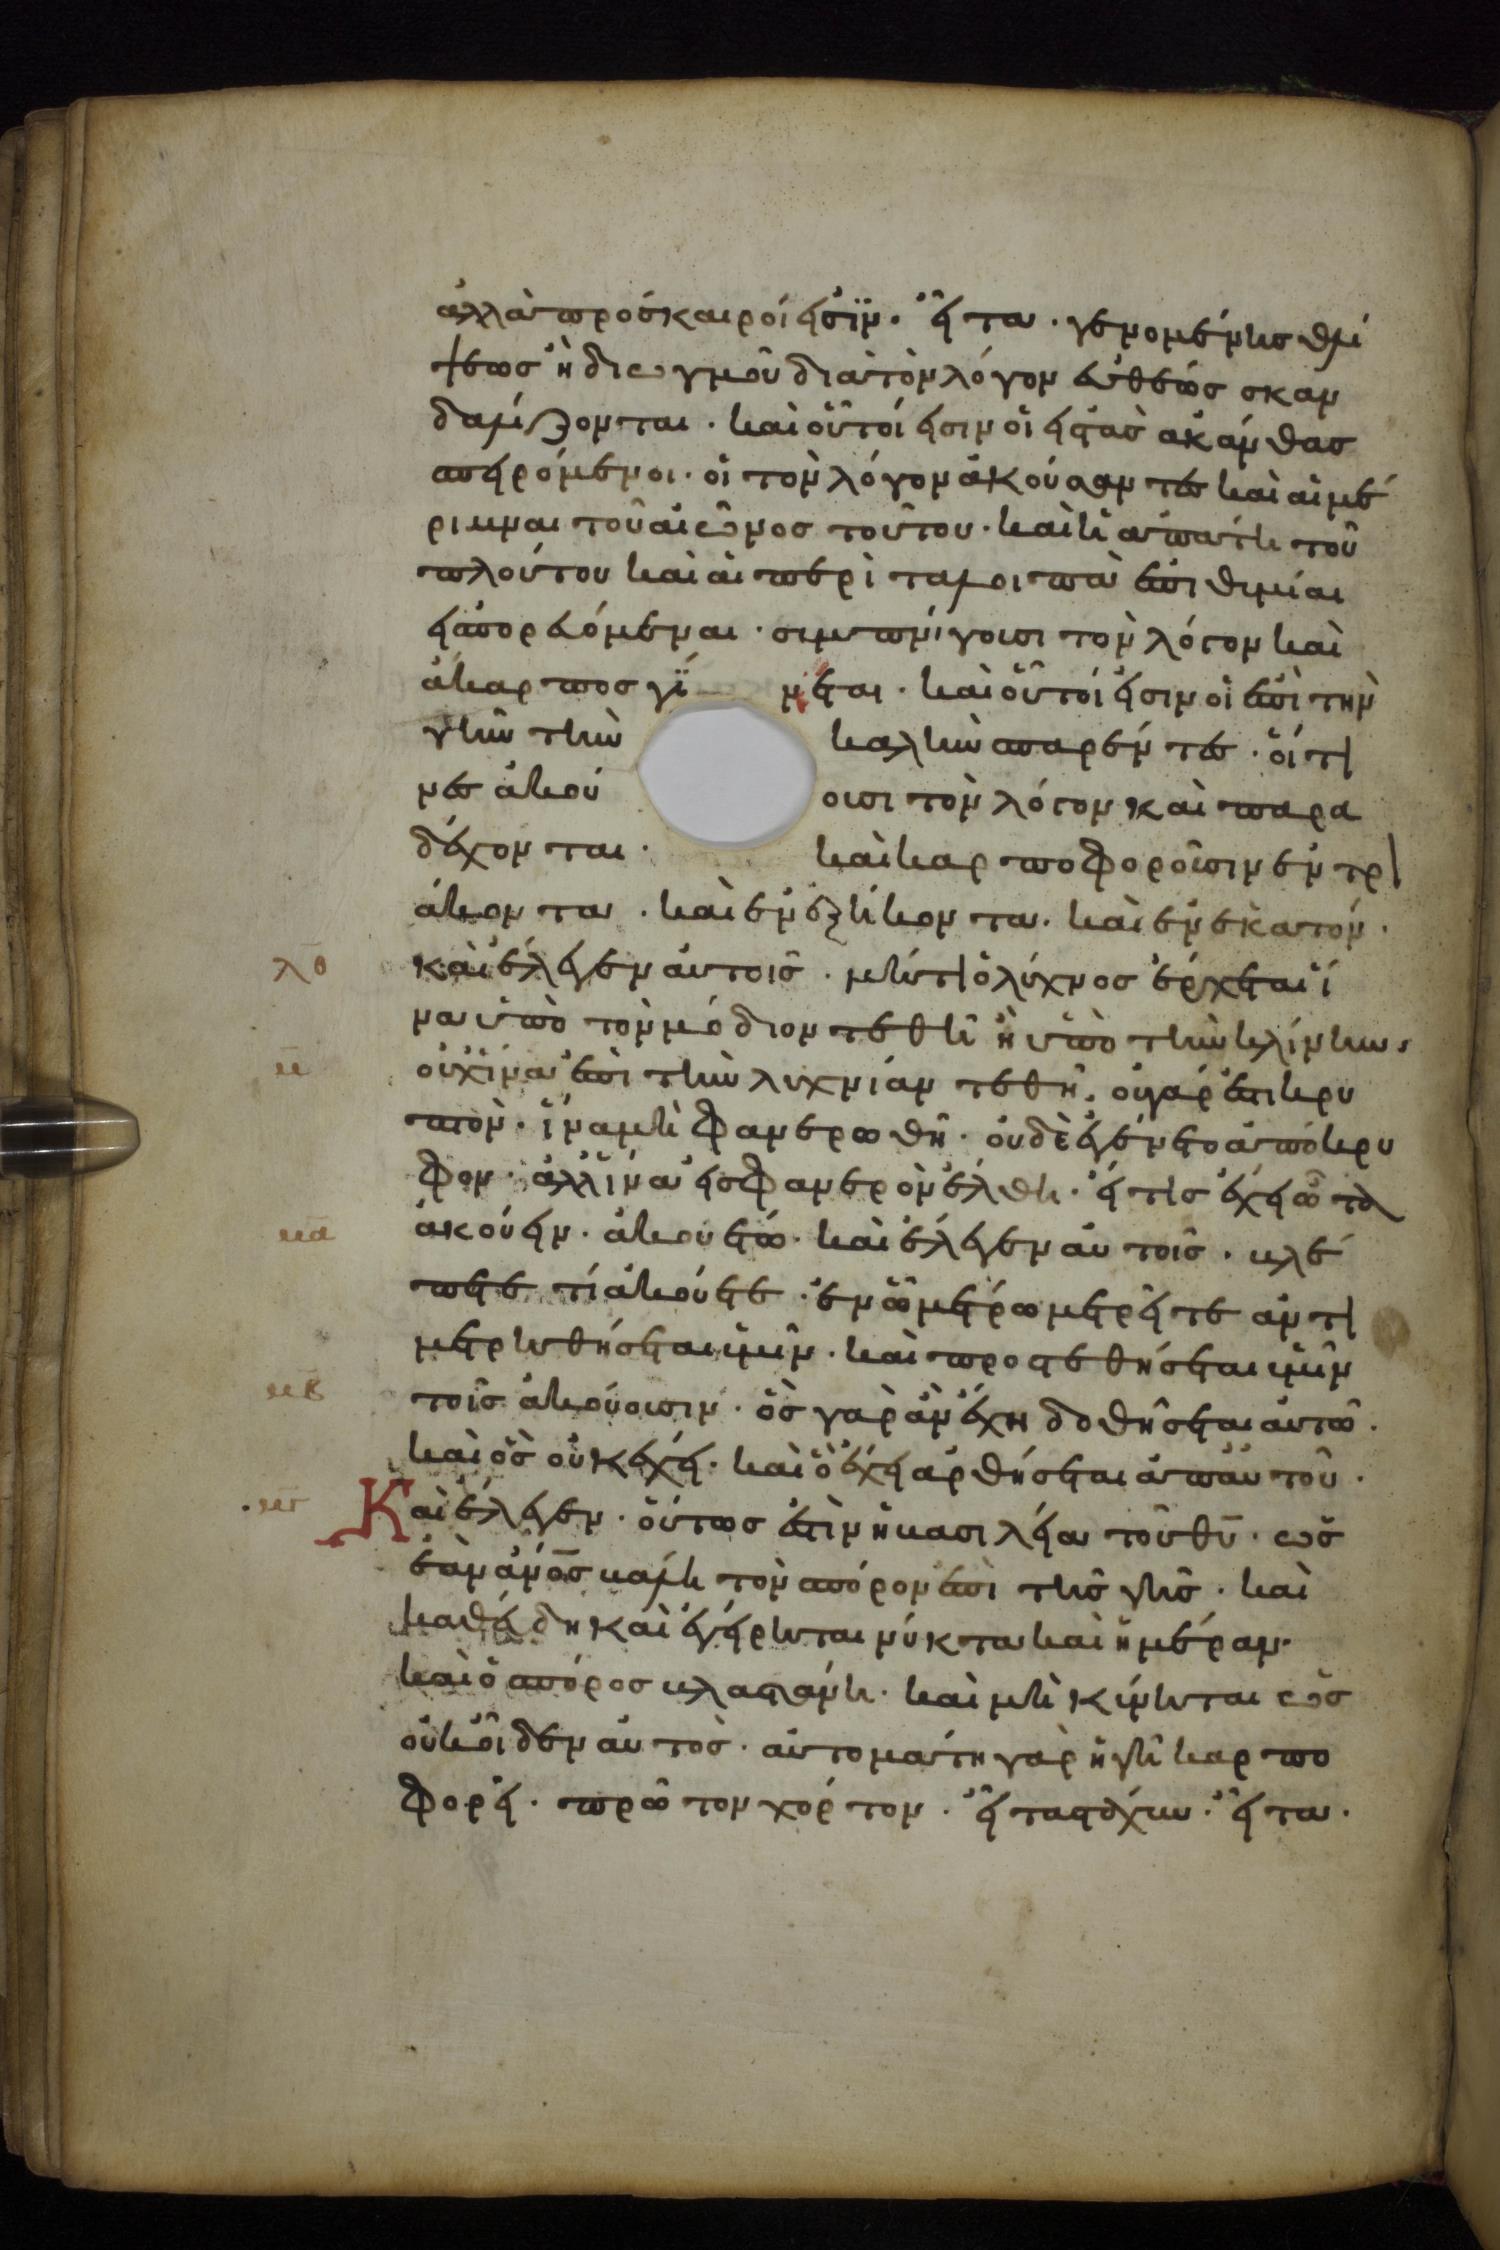 ἀλλὰ πρόσκαιροί εἰσϊν· εἶτα· γενομένης θλί
ψεως ἢ διωγμοῦ διὰ τὸν λόγον εὐθεὼς σκαν
δαλίζονται· καὶ οὗτοί εἰσιν οἱ εἰς τὰς ἀκάνθας
σπειρόμενοι· οἱ τὸν λόγον ἀκούσαντες καὶ αἱ μέ
ριμναι τοῦ αἰῶνος τούτου· καὶ ἡ ἀπάτη τοῦ
πλούτου καὶ αἱ περὶ τα λοιπὰ ἐπιθυμίαι
εἰσπορευόμεναι· συμπνίγουσι τὸν λόγον καὶ
ἄκαρπος γϊνεται· καὶ οὗτοί εἰσιν οἱ ἐπὶ τὴν
γῆν τὴν καλὴν σπαρέντες· οἵτι
νες ἀκούουσι τὸν λόγον καὶ παρα
δέχονται· καὶ καρποφοροῦσιν ἐν τρι
άκοντα· καὶ ἐν ἑξήκοντα· καὶ ἐν ἑκατόν·
λθ καὶ ἔλεγεν αὐτοῖς· μήτι ὁ λύχνος ἔρχεται ἵ
να ὑπὸ τὸν μόδιον τεθῆ ἢ ὑπὸ τὴν κλίνην·
μ οὐχ ἵνα ἐπὶ τὴν λυχνίαν τεθῆ· οὐ γάρ ἐστι κρυ
πτὸν· ἵνα μὴ φανερωθῆ· οὐδὲ ἐγένετο ἀπόκρυ
φον· ἀλλ ἵνα εἰς φανερὸν ἔλθη· εἴ τις ἔχει ὦτα
μα ἀκούειν· ἀκουέτω· καὶ ἔλεγεν αὐτοῖς· βλέ
πετε τί ἀκούετε· ἐν ὧ μέτρω μετρεῖτε ἀντι
μετρηθήσεται ὑμῖν· καὶ προστεθήσεται ὑμῖν
μβ τοῖς ἀκούουσιν· ὃς γὰρ ἂν ἔχη δοθῆσεται αὐτῶ·
καὶ ὃς οὐκ ἔχει· καὶ ὃ ἔχει ἀρθήσεται ἀπ αὐτοῦ·
μγ Καὶ ἔλεγεν· οὕτως ἐστὶν ἡ βασιλεία τοῦ θυ· ὡς
ἐὰν ἄνος βάλη τὸν σπόρον ἐπὶ τῆς γῆς· καὶ
καθεύδη καὶ ἐγείρηται νύκτα καὶ ἡμέραν·
καὶ ὁ σπόρος βλαστάνη· καὶ μὴ κίνηται ὡς
οὐκ οἶδεν αὐτὸς· αὐτομάτη γὰρ ἡ γῆ καρπο
φορεῖ· πρῶτον χόρτον· εἶτα στάχυν· εἶτα·